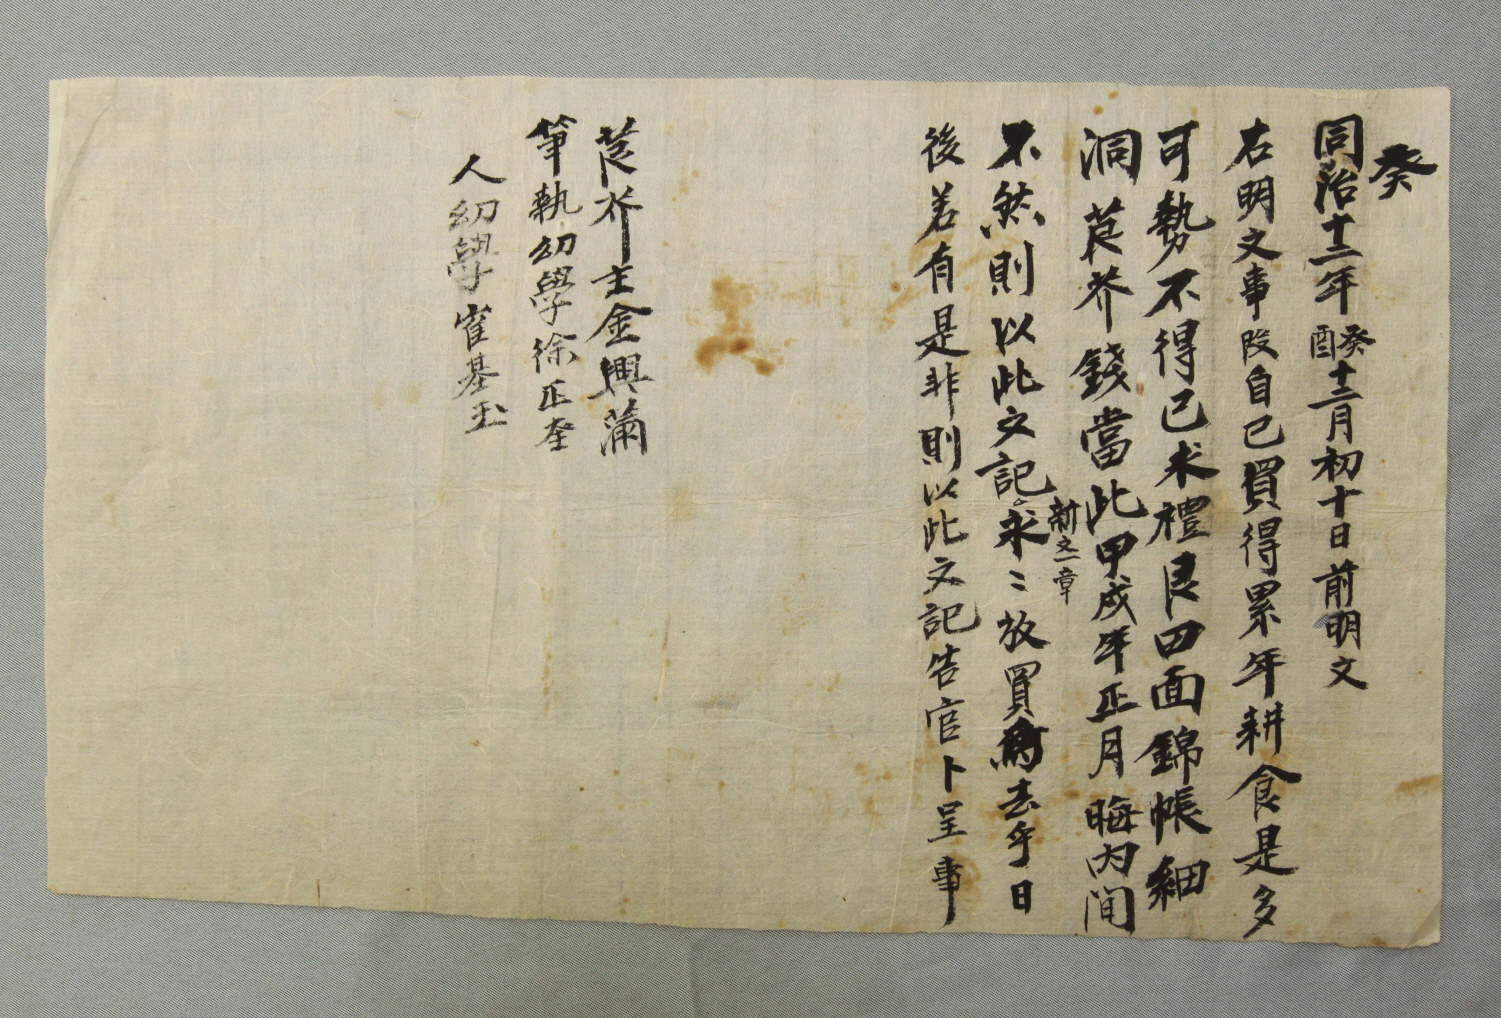 癸
同治十二年癸酉十二月初十日前明文
右明文事段自己買得累年耕食是多
可勢不得已末禮良四面錦帳細
洞芪芥錢當此甲戌年正月晦內間
新文一章
不然則以此文記求〻放買為去乎日
後若有是非則以此文記告官卜呈事
芪芥主金興蒲
筆執幼學徐正奎
人幼學崔基玉